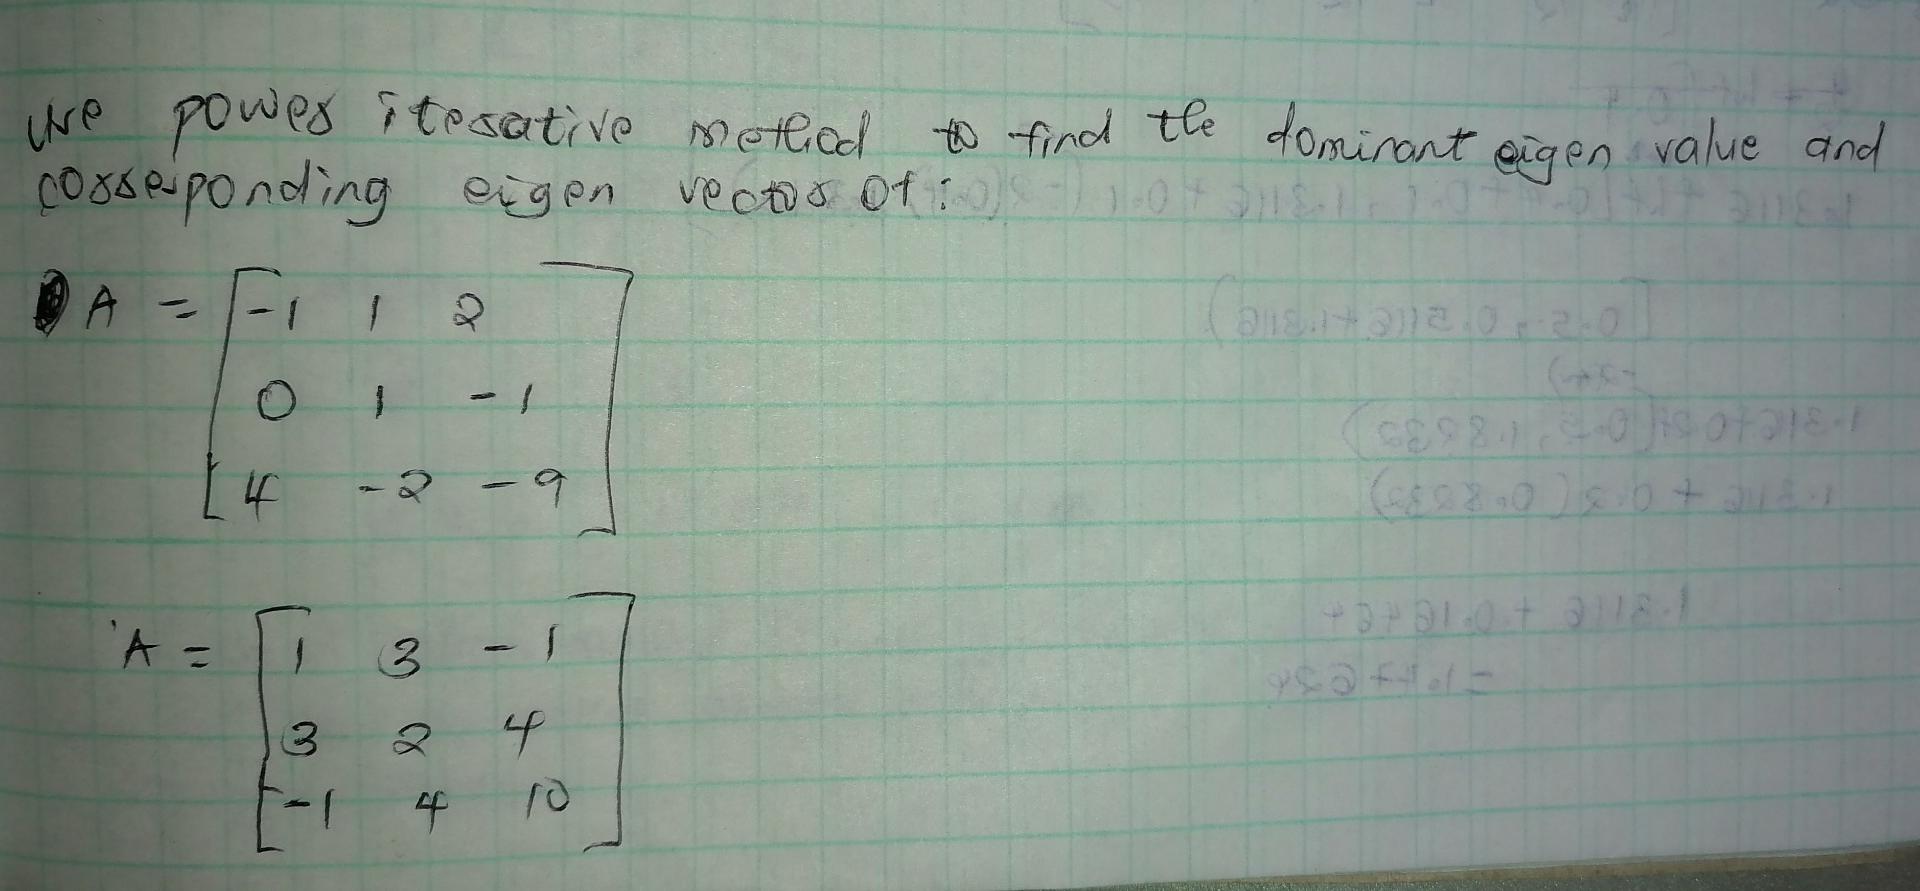 Use power iterative method to find the dominant eigen value and
corresponding eigen vector of:
A = [-1 1 2
0 1 -1
4 -2 -9]
A = [1 3 -1
3 2 4
-1 4 10]